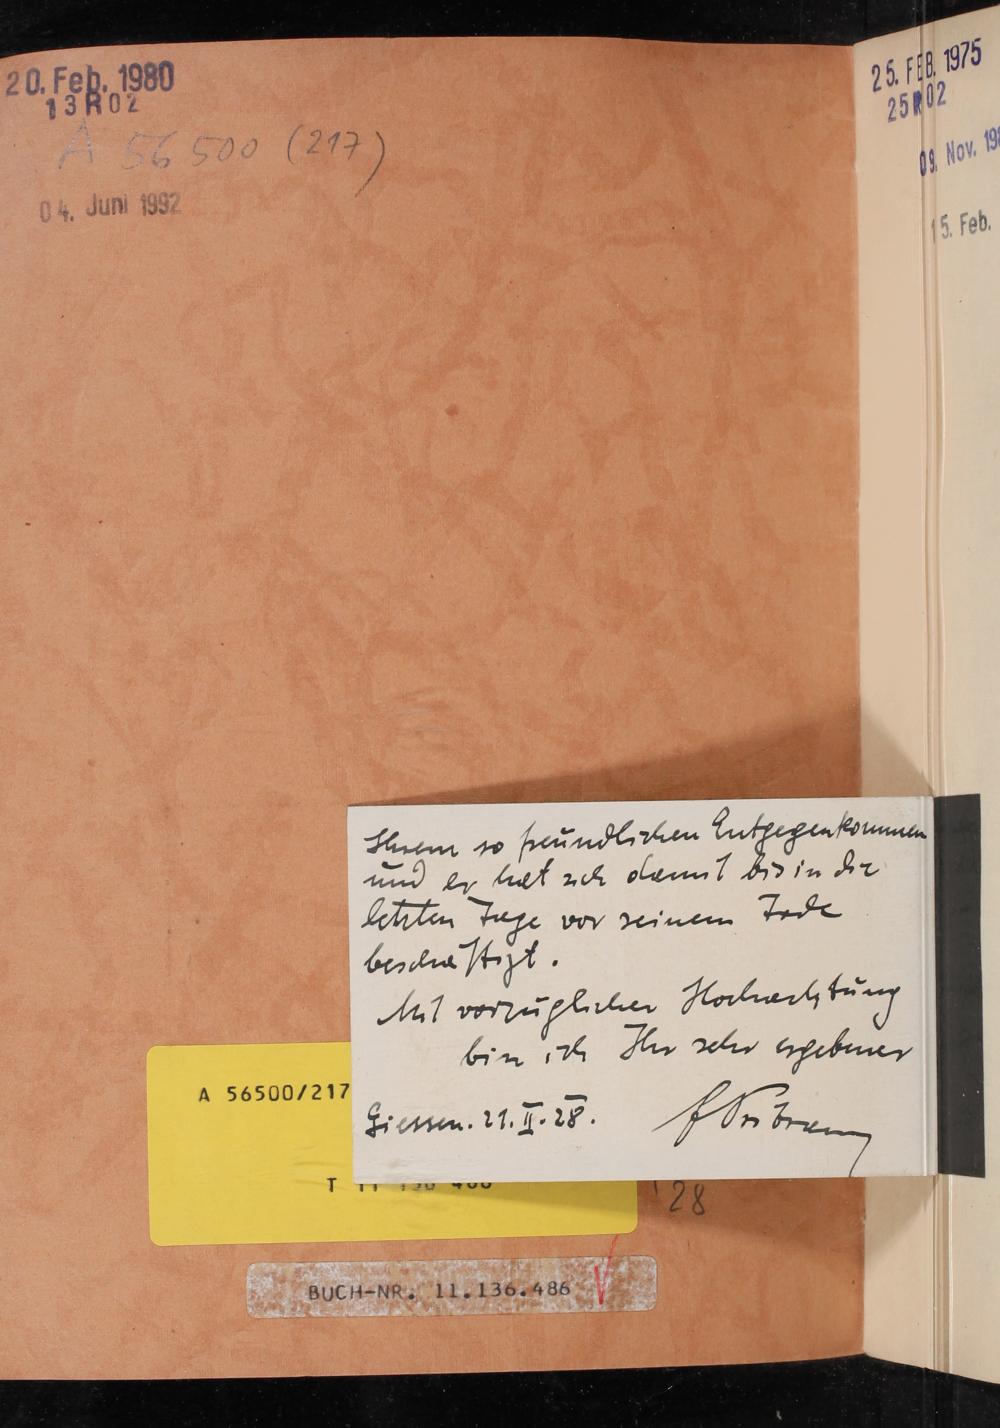 20. Feb. 1980
13R02
A 56500 (217)
04. Juni 1992
25. FEB. 1975
25R02
09. Nov. 198
15. Feb.
Ihrem so freundlichen Entgegenkommen
und er hat sich damit bis in die
letzten Tage vor seinem Tode
beschäftigt.
Mit vorzüglicher Hochachtung
bin ich Ihr sehr ergebener
Giessen. 21. II. 28.
Pribram
A 56500/217
T 11 136 486
28
BUCH-NR. 11.136.486